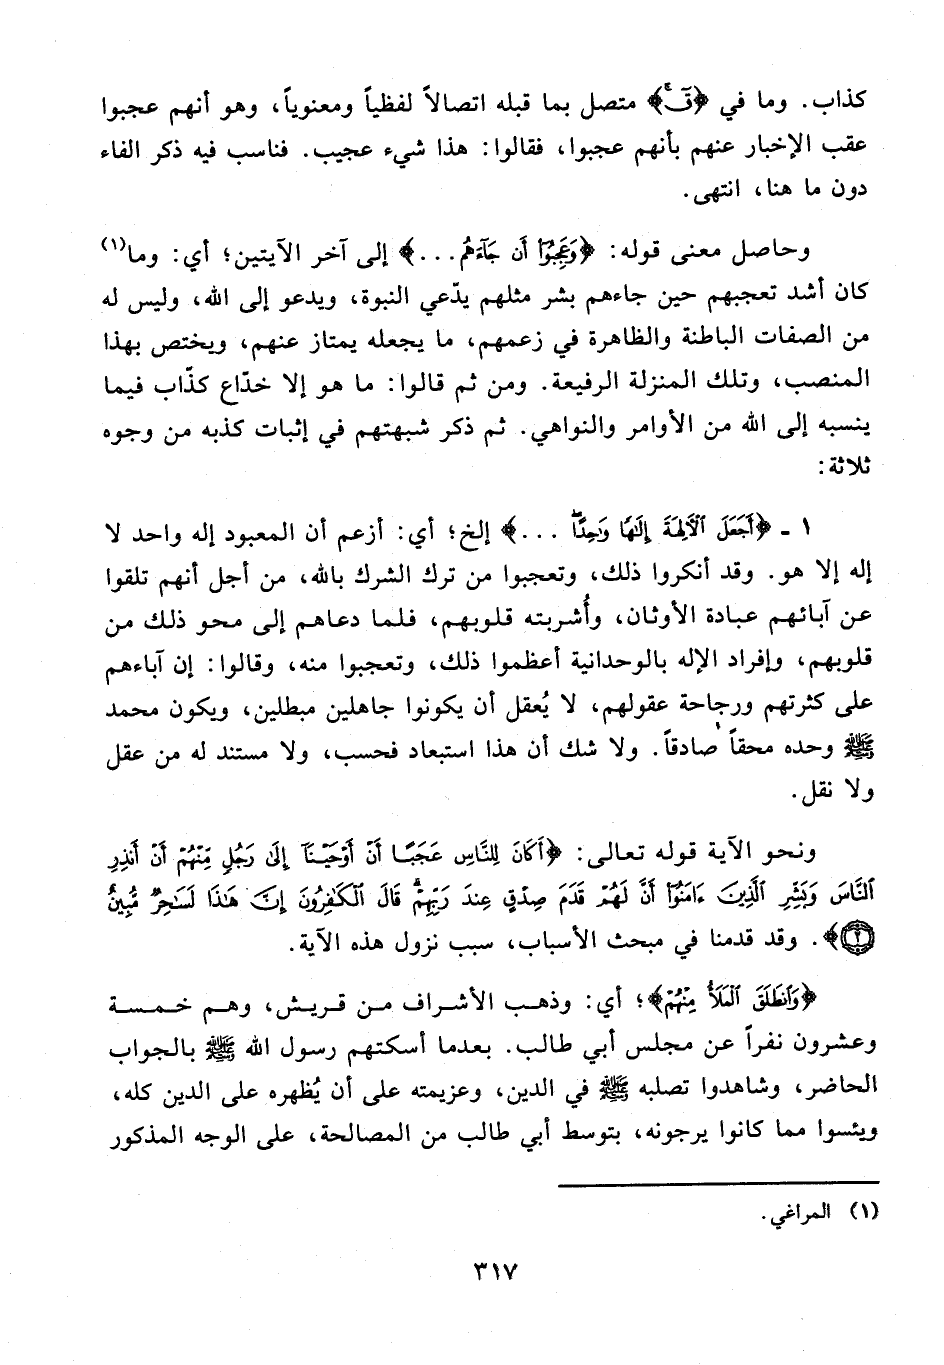 كذاب. وما في ﴿قٓۚ﴾ متصل بما قبله اتصالاً لفظياً ومعنوياً، وهو أنهم عجبوا
عقب الإخبار عنهم بأنهم عجبوا، فقالوا: هذا شيء عجيب. فناسب فيه ذكر الفاء
دون ما هنا، انتهى.
وحاصل معنى قوله: ﴿وَعَجِبُوٓا۟ أَن جَآءَهُم...﴾ إلى آخر الآيتين؛ أي: وما(١)
كان أشد تعجبهم حين جاءهم بشر مثلهم يدّعي النبوة، ويدعو إلى الله، وليس له
من الصفات الباطنة والظاهرة في زعمهم، ما يجعله يمتاز عنهم، ويختص بهذا
المنصب، وتلك المنزلة الرفيعة. ومن ثم قالوا: ما هو إلا خدّاع كذّاب فيما
ينسبه إلى الله من الأوامر والنواهي. ثم ذكر شبهتهم في إثبات كذبه من وجوه
ثلاثة:
١ - ﴿أَجَعَلَ ٱلْأَلِهَةَ إِلَٰهًا وَٰحِدًاۖ ...﴾ إلخ؛ أي: أزعم أن المعبود إله واحد لا
إله إلا هو. وقد أنكروا ذلك، وتعجبوا من ترك الشرك بالله، من أجل أنهم تلقوا
عن آبائهم عبادة الأوثان، وأُشربته قلوبهم، فلما دعاهم إلى محو ذلك من
قلوبهم، وإفراد الإله بالوحدانية أعظموا ذلك، وتعجبوا منه، وقالوا: إن آباءهم
على كثرتهم ورجاحة عقولهم، لا يُعقل أن يكونوا جاهلين مبطلين، ويكون محمد
ﷺ وحده محقاً صادقاً. ولا شك أن هذا استبعاد فحسب، ولا مستند له من عقل
ولا نقل.
ونحو الآية قوله تعالى: ﴿أَكَانَ لِلنَّاسِ عَجَبًا أَنْ أَوْحَيْنَآ إِلَىٰ رَجُلٍ مِّنْهُمْ أَنْ أَنذِرِ
ٱلنَّاسَ وَبَشِّرِ ٱلَّذِينَ ءَامَنُوٓا۟ أَنَّ لَهُمْ قَدَمَ صِدْقٍ عِندَ رَبِّهِمْۗ قَالَ ٱلْكَٰفِرُونَ إِنَّ هَٰذَا لَسَٰحِرٌ مُّبِينٌ
۝٢﴾. وقد قدمنا في مبحث الأسباب، سبب نزول هذه الآية.
﴿وَٱنطَلَقَ ٱلْمَلَأُ مِنْهُمْ﴾؛ أي: وذهب الأشراف من قريش، وهم خمسة
وعشرون نفراً عن مجلس أبي طالب. بعدما أسكتهم رسول الله ﷺ بالجواب
الحاضر، وشاهدوا تصلبه ﷺ في الدين، وعزيمته على أن يُظهره على الدين كله،
ويئسوا مما كانوا يرجونه، بتوسط أبي طالب من المصالحة، على الوجه المذكور
(١) المراغي.
٣١٧